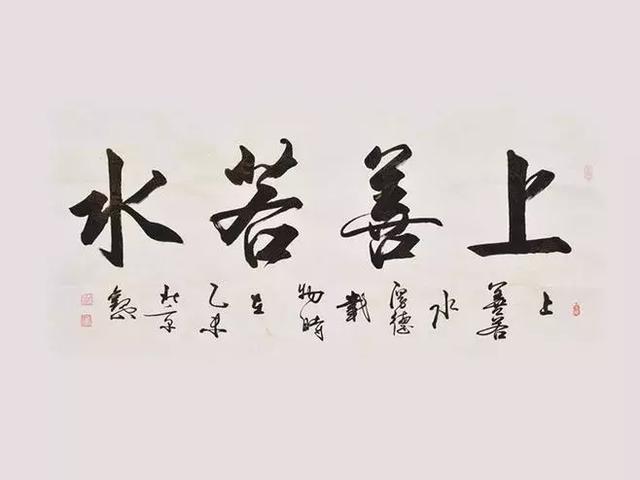 上善若水
上善若水厚德載物時在乙未北京